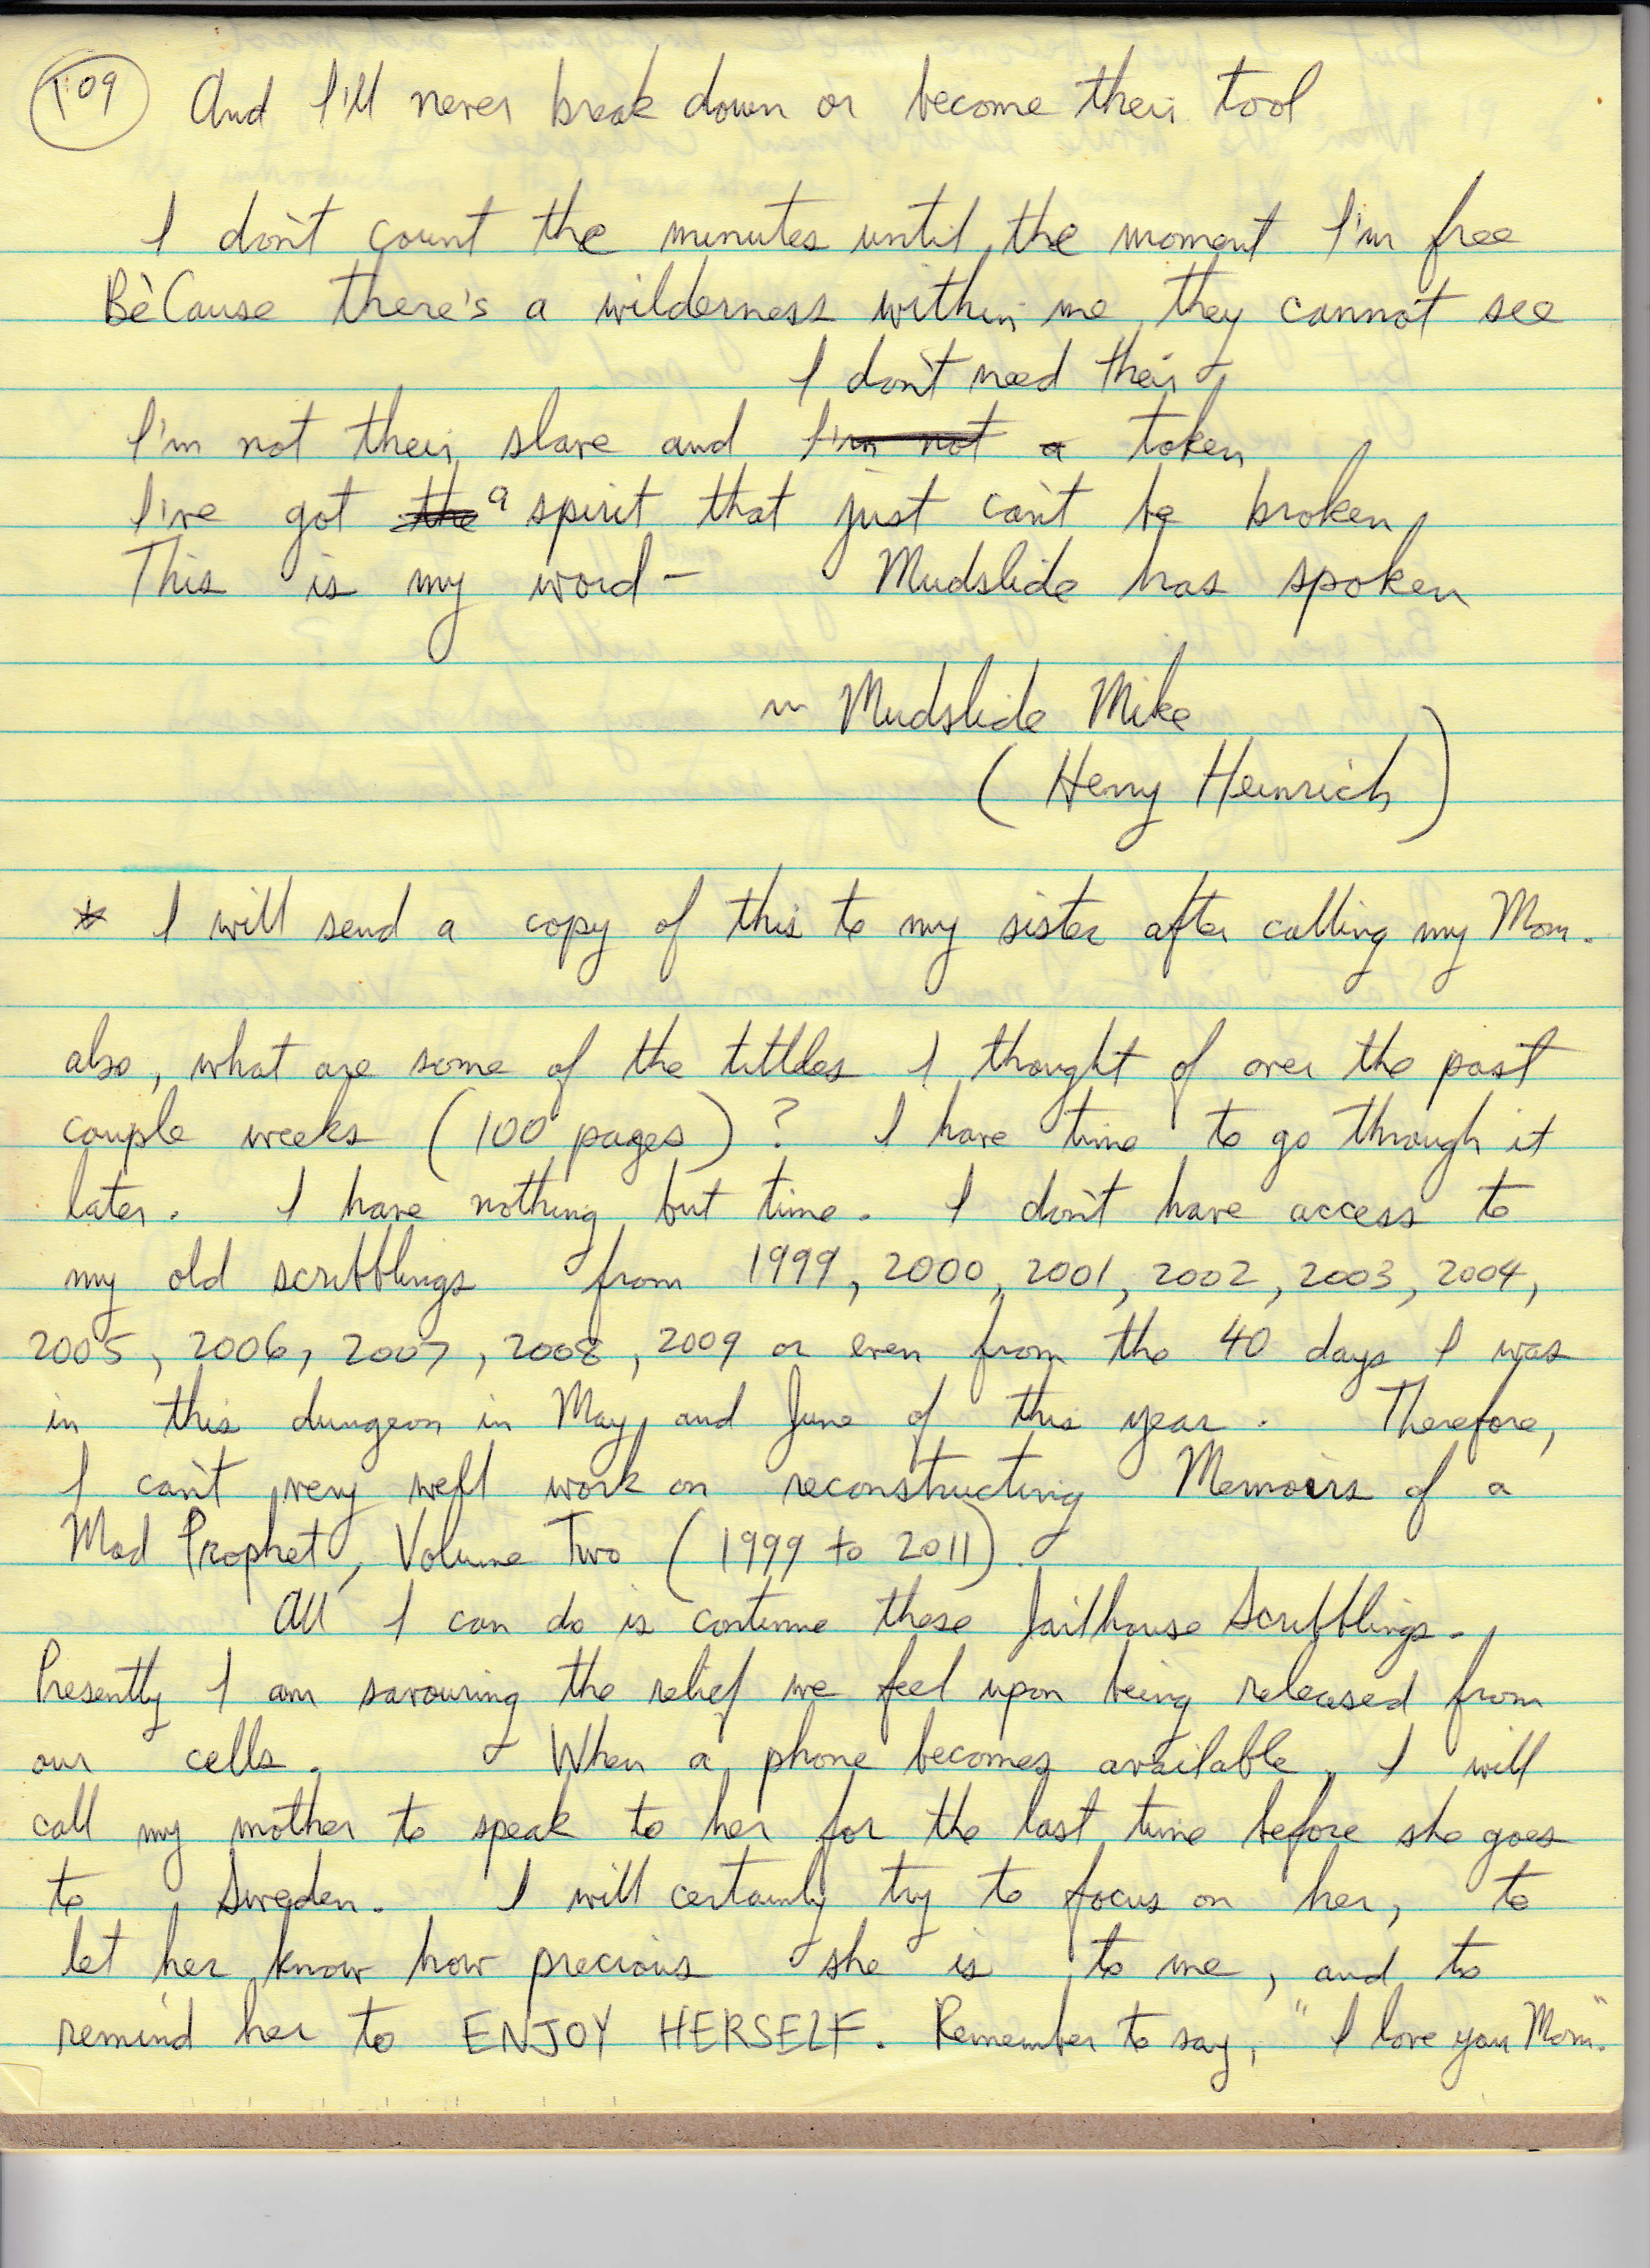 109 And I'll never break down or become their tool
I don't count the minutes until the moment I'm free
BeCause there's a wilderness within me they cannot see
I don't need their
I'm not their slave and I'm not a token
I've got the a spirit that just can't be broken
This is my word – Mudslide has spoken
~ Mudslide Mike
(Henry Heinrich)
* I will send a copy of this to my sister after calling my Mom.
also, what are some of the tittles I thought of over the past
couple weeks (100 pages)? I have time to go through it
later. I have nothing but time. I don't have access to
my old scribblings from 1999, 2000, 2001, 2002, 2003, 2004,
2005, 2006, 2007, 2008, 2009 or even from the 40 days I was
in this dungeon in May and June of this year. Therefore,
I can't very well work on reconstructing Memoirs of a
Mad Prophet, Volume Two (1999 to 2011).
All I can do is continue these Jailhouse Scribblings.
Presently I am savouring the relief we feel upon being released from
our cells. When a phone becomes available, I will
call my mother to speak to her for the last time before she goes
to Sweden. I will certainly try to focus on her, to
let her know how precious she is to me, and to
remind her to ENJOY HERSELF. Remember to say, "I love you Mom."